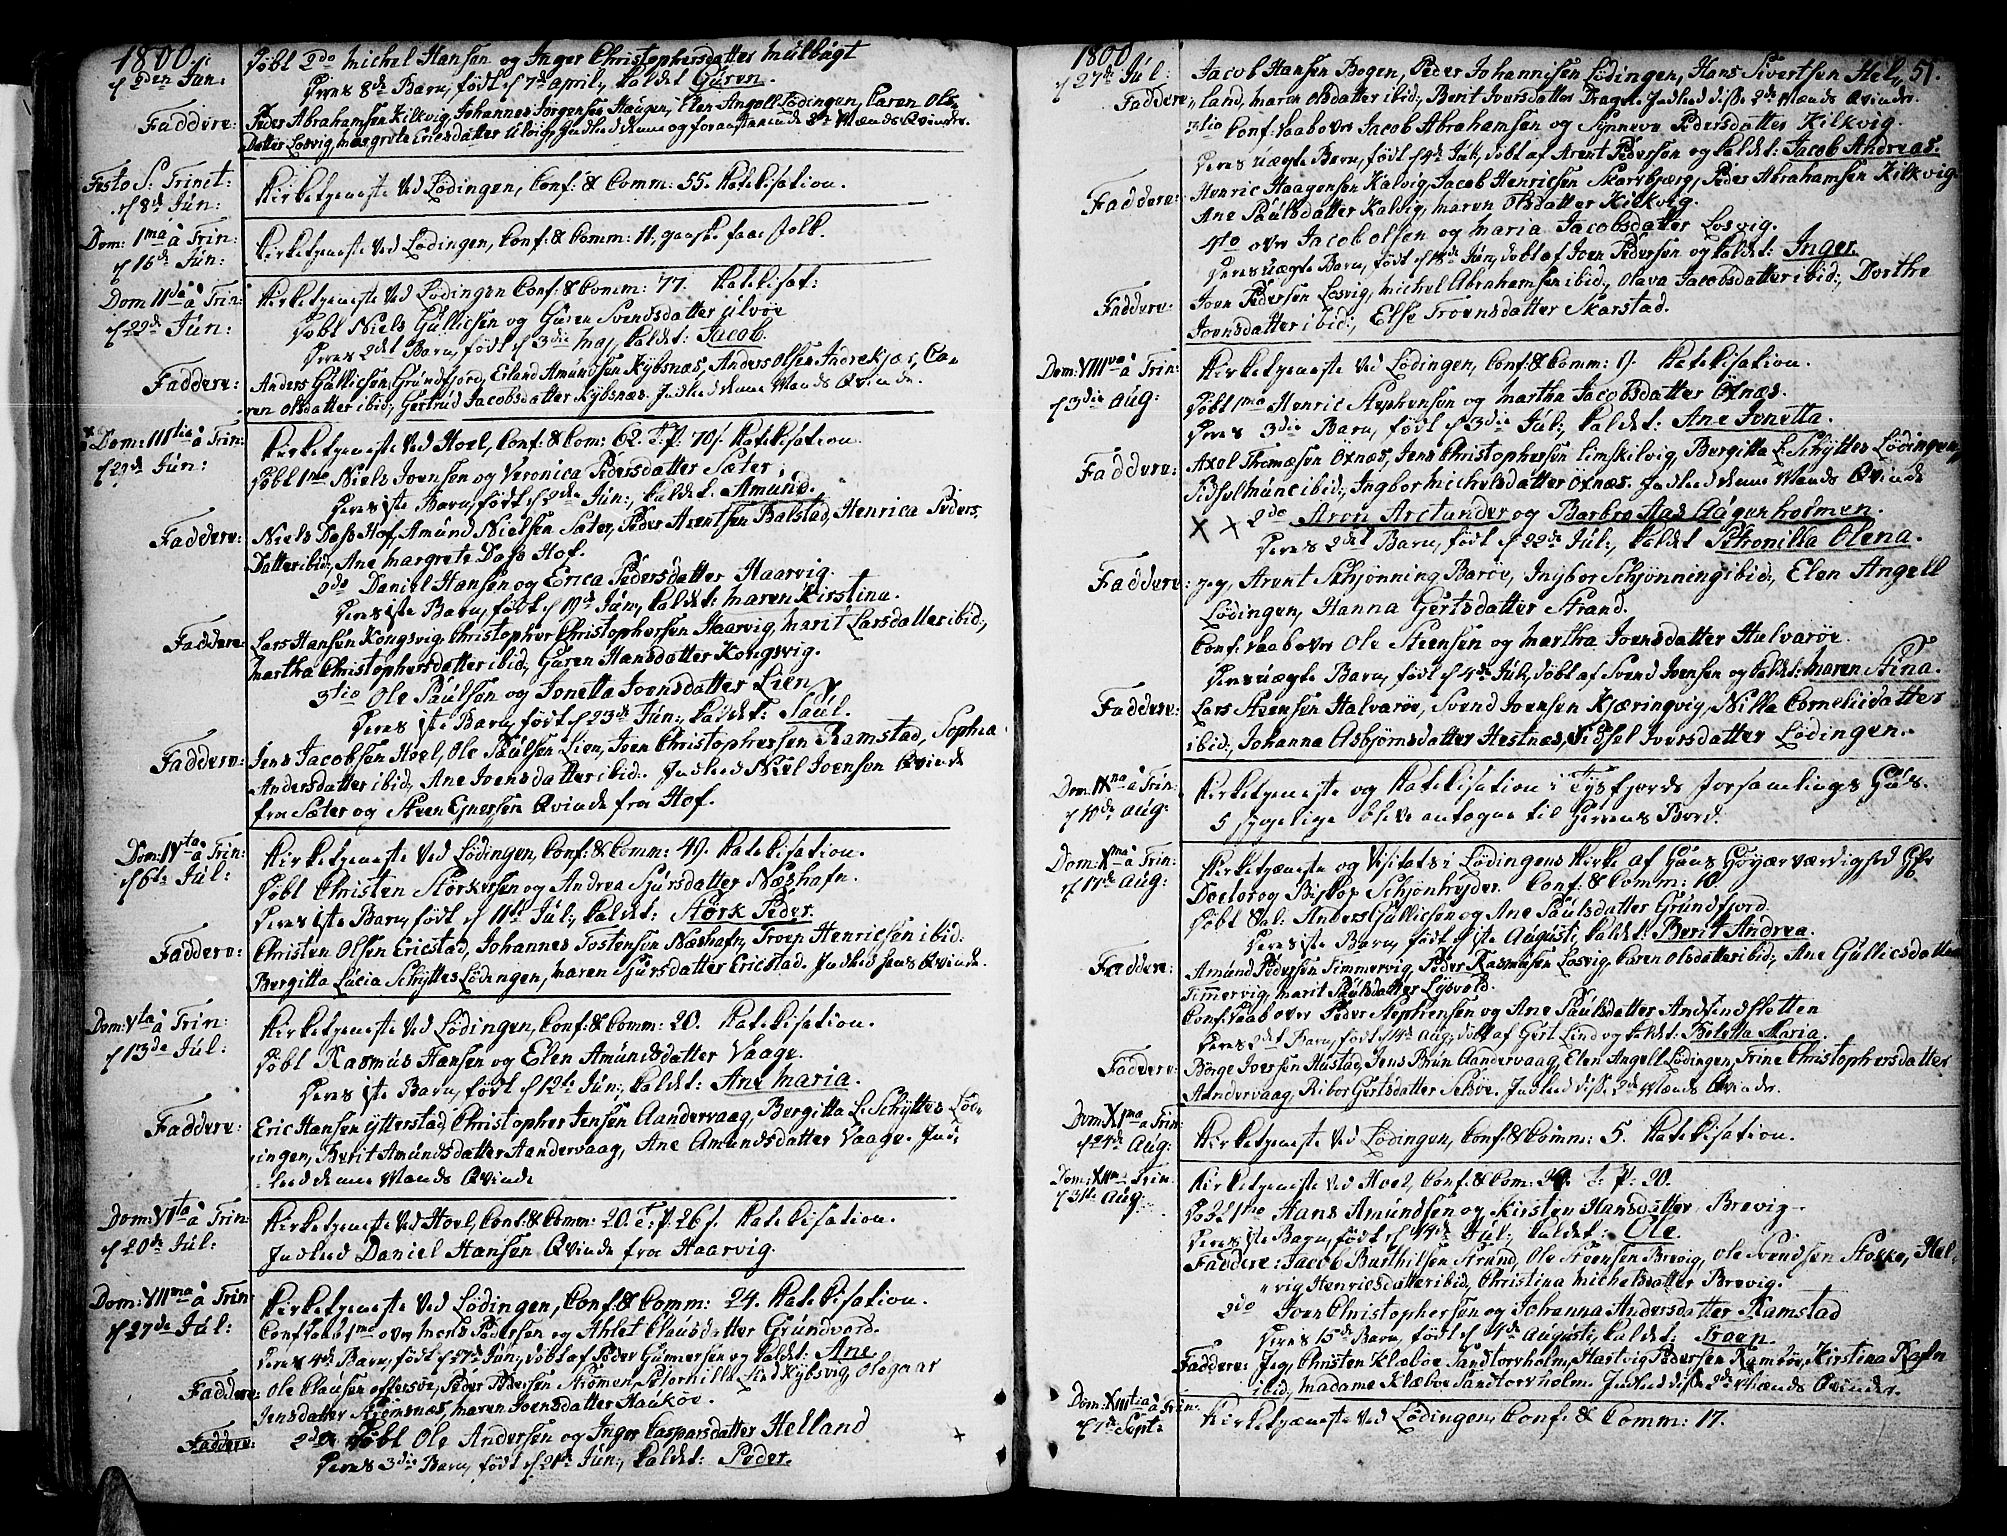 1800.
d 2den Jun:
Døbt 2do Michel Hansen og Inger Christophersdatter Mulbögt
Deres 8de Barn, født d 7de April, kaldet Guren.
Faddere: Peder Abrahamsen Kilkvig, Johannes Jorgensen Haugen, Elen Angell Lödingen, Caren Ols-
datter Losvig, Margrete Ericsdatter Ulvig, Indled denne og foranstaaende 2de Mænds Qvinder.
Festo S: Trinit:
d 8de Jun:
Kirketjeneste ved Lödingen, Conf: & Comm: 55. Katekisation.
Dom: 1ma à Trin:
d 15de Jun:
Kirketjeneste ved Lödingen, Conf: & Comm: 11, ganske faae Folk.
Dom IIda à Trin:
d 22de Jun:
Kirketjeneste ved Lödingen Conf: & Comm: 77. Katekisat:
Døbt Niels Gullicsen og Guren Svendsdatter Ulvøe
Deres 2det Barn, født d 3die Maj, kaldet: Jacob.
Faddere: Anders Gullicsen Grundfjord, Erland Amundsen Kybsnæs, Anders Olsen Indrekjær, Ca-
ren Olsdatter ibid:, Gertrud Jacobsdatter Kybsnæs. Indled denne Mands Qvinde.
Dom: IIItia à Trin:
d 29de Jun:
Kirketjeneste ved Hoel, Conf: & Com: 62. T. p: 70. Katekisation.
Døbt 1mo Niels Joensen og Veronica Pedersdatter Sæter,
Deres 1ste Barn, født d 2de Jun:, kaldet. Amund.
Faddere: Niels Dass Hof, Amund Nielsen Sæter, Peder Arentsen Balstad, Henrica Peders-
datter ibid:, Ane Margrete Dass Hof.
2do Daniel Hansen og Erica Pedersdatter Haarvig
Deres 1ste Barn, født d 19de Jun:, kaldet: Maren Kirstina.
Faddere: Lars Hansen Kongsvig, Christopher Christophersen Haarvig, Marit Larsdatter ibid:,
Martha Christophersdatter ibid:, Guren Hansdatter Kongsvig.
3tio Ole Paulsen og Jonetta Joensdatter Lien
Deres 1ste Barn, født d 23de Jun:, kaldet: Paul.
Faddere: Jens Jacobsen Hoel, Ole Paulsen Lien, Joen Christophersen Ramstad, Sophia
Andersdatter ibid:, Ane Joensdatter ibid:. Indled Niel Joensen Qvinde
fra Sæter og Steen Ejnersen Qvinde fra Hof.
Dom: IVta à Trin:
d 6te Jul:
Kirketjeneste ved Lödingen, Conf: & Comm: 49. Katekisation.
Døbt Christen Størkersen og Andrea Sjursdatter Næshafn.
Deres 1ste Barn, født d 11te Jul:, kaldet: Størk Peder.
Faddere: Christen Olsen Ericstad, Johannes Tostensen Næshafn, Troen Henricsen ibid:
Bergitta Lucia Schyttes Lödingen, Maren Sjursdatter Ericstad. Indled hans Qvinde.
Dom: Vta à Trin:
d 13de Jul:
Kirketjeneste ved Lödingen, Conf: & Comm: 20. Katekisation.
Døbt Rasmus Hansen og Elen Amundsdatter Vaage.
Deres 1ste Barn, født d 12te Jun:, kaldet: Ane Maria.
Faddere: Eric Hansen Ytterstad, Christopher Jensen Aandervaag, Bergitta L: Schyttes Lød-
ingen, Berit Amundsdatter Aandervaag, Ane Amundsdatter Vaage. Ind-
leed denne Mands Qvinde
Dom: VIta à Trin:
d 20de Jul:
Kirketjeneste ved Hoel, Conf: & Comm: 20. T: p. 26. Katekisation.
Indled Daniel Hansen Qvinde fra Haarvig.
Dom: VIIma à Trin:
d 27de Jul:
Kirketjeneste ved Lödingen, Conf: & Comm: 24. Katekisation.
Conf: Daab 1mo over Mons Pedersen og Ahlet Clausdatter Grundvord.
Deres 4de Barn, født d 7de Jun:, døbt af Peder Gunnersen og kaldet: Ane
Faddere: Ole Clausen Offersøe, Peder Pedersen Strømen, Petornilla Lind Kybsvig, Olegaar
Jensdatter Strømsnæs, Maren Joensdatter Haukøe.
Faddere: 2do Døbt Ole Andersen og Inger Caspersdatter Helland
Deres 3die Barn, født d 21de Jun:, kaldet: Peder.
1800
d 27de Jul:
51.
Faddere: Jacob Hansen Bogen, Peder Johannisen Lödingen, Hans Sivertsen Hel-
land, Maren Olsdatter ibid:, Berit Iversdatter Drage. Indled disse 2de Mænds Qvinder.
3tio Conf: Daab over Jacob Abrahamsen og Synneve Pedersdatter Kilkvig.
Deres uægte Barn, født d 4de Jul:, døbt af Arent Pedersen og kaldet: Jacob Andreas.
Faddere: Henric Haagensen Kalvig, Jacob Henricsen Skarvbjerg, Peder Abrahamsen Kilkvig
Ane Paulsdatter Kalvig, Maren Olsdatter Kilkvig.
4to over Jacob Olsen og Maria Jacobsdatter Losvig.
Deres uægte Barn, født d 18de Jun:, døbt af Joen Pedersen og kaldet: Inger.
Faddere: Joen Pedersen Losvig, Michel Abrahamsen ibid:, Olava Jacobsdatter ibid:, Dorthe
Joensdatter ibid:, Else Troensdatter Skarstad.
Dom: VIIIva à Trin:
d 3die Aug:
Kirketjeneste ved Lödingen, Conf: & Comm: 9. Katekisation.
Døbt 1mo Henric Stephensen og Martha Jacobsdatter Öxnæs.
Deres 3die Barn, født d 3die Jul:, kaldet: Ane Jonetta.
Faddere: Axel Thomæsen Öxnæs, Jens Christophersen Limskilvig, Bergitta L: Schyttes Lödingen,
Sidsel Munc ibid:, Ingbor Michelsdatter Öxnæs. Indled denne Mands Qvinde
2do Aron Arctander og Barbro Aas Gaagenholmen.
Deres 2det Barn, født d 22de Jul:, kaldet Petronilla Olena.
Faddere: Jeg, Arent Schjønning Barøe, Ingbor Schjønning ibid:, Elen Angell
Lödingen, Hanna Gertsdatter Strand.
Conf: Daab over Ole Steensen og Martha Joensdatter Halvarøe.
Deres uægte Barn, født d 4de Jul:, døbt af Svend Joensen og kaldet: Maren Stina.
Faddere: Lars Steensen Halvarøe, Svend Joensen Kjæringvig, Nilla Corneliidatter
ibid:, Johanna Asbjørnsdatter Hestnæs, Sidsel Iversdatter Lödingen.
Dom: IXna à Trin:
d 10de Aug:
Kirketjeneste og Katekisation i Tysfjords Forsamlings Huus.
5 sygelige bleve antagne til Herrens Bord.
Dom: Xma à Trin:
d 17de Aug:
Kirketjeneste og Visitats i Lödingens Kirke af Hans Höyærværdighed Hr
Doctor og Biskop Schjönheyder. Conf: & Comm: 10.
Døbt & al: Anders Gullicsen og Ane Paulsdatter Grundfjord.
Deres 1ste Barn, født d 1ste Augusti, kaldet: Berit Andrea.
Faddere: Amund Pedersen Timmervig, Peder Rasmusen Losvig, Caren Olsdatter ibid:, Ane Gullicsdatter
Timmervig, Marit Paulsdatter Lysvold.
Conf: Daab over Peder Stephensen og Ane Paulsdatter Andsindsletten
Deres 2det Barn, født d 4de Aug:, døbt af Gert Lind og kaldet: Beletta Maria.
Faddere: Børge Iversen Hustad, Jens Brun Aandervaag, Elen Angell Lødingen, Trine Christophersdatter
Aandervaag, Ribor Gertsdatter Seløe. Indled disse 2de Mænds Qvinder.
Dom: XIma à Trin:
d 24de Aug:
Kirketjeneste ved Lödingen, Conf: & Comm: 5. Katekisation.
Dom: XIIma Trin:
d 31te Aug:
Kirketjeneste ved Hoel, Conf: & Com: 29. T: p: 30.
Døbt 1mo Hans Amundsen og Kirsten Hansdatter Brevig.
Deres 1ste Barn, født d 14de Jul:, kaldet: Ole.
Faddere: Jacob Barthilsen Strand, Ole Troensen Brevig, Ole Svendsen Stokke, Hel-
vig Henricsdatter ibid:, Christina Michelsdatter Brevig.
2do Joen Christophersen og Johanna Andersdatter Ramstad
Deres 15de Barn, født d 4de Augusti, kaldet: Troen.
Faddere: Jeg, Christen Klæboe Sandtorrholm, Hartvig Pedersen Rambøe, Kirstina Rafn
ibid:, Madame Klæboe Sandtorrholm. Indled disse 2de Mænds Qvinder.
Dom: XIIItia à Trin:
d 7de Sept:
Kirketjeneste ved Lödingen, Conf: & Comm: 17.